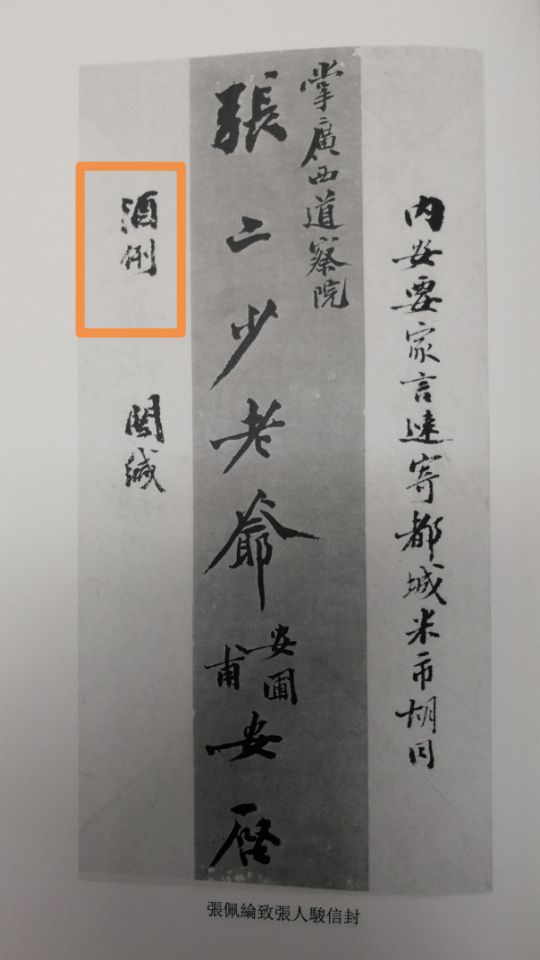 內安要家言速寄都城米市胡同
掌廣西道察院
張二少老爺安圃甫安啓
酒例 閩緘
張佩綸致張人駿信封